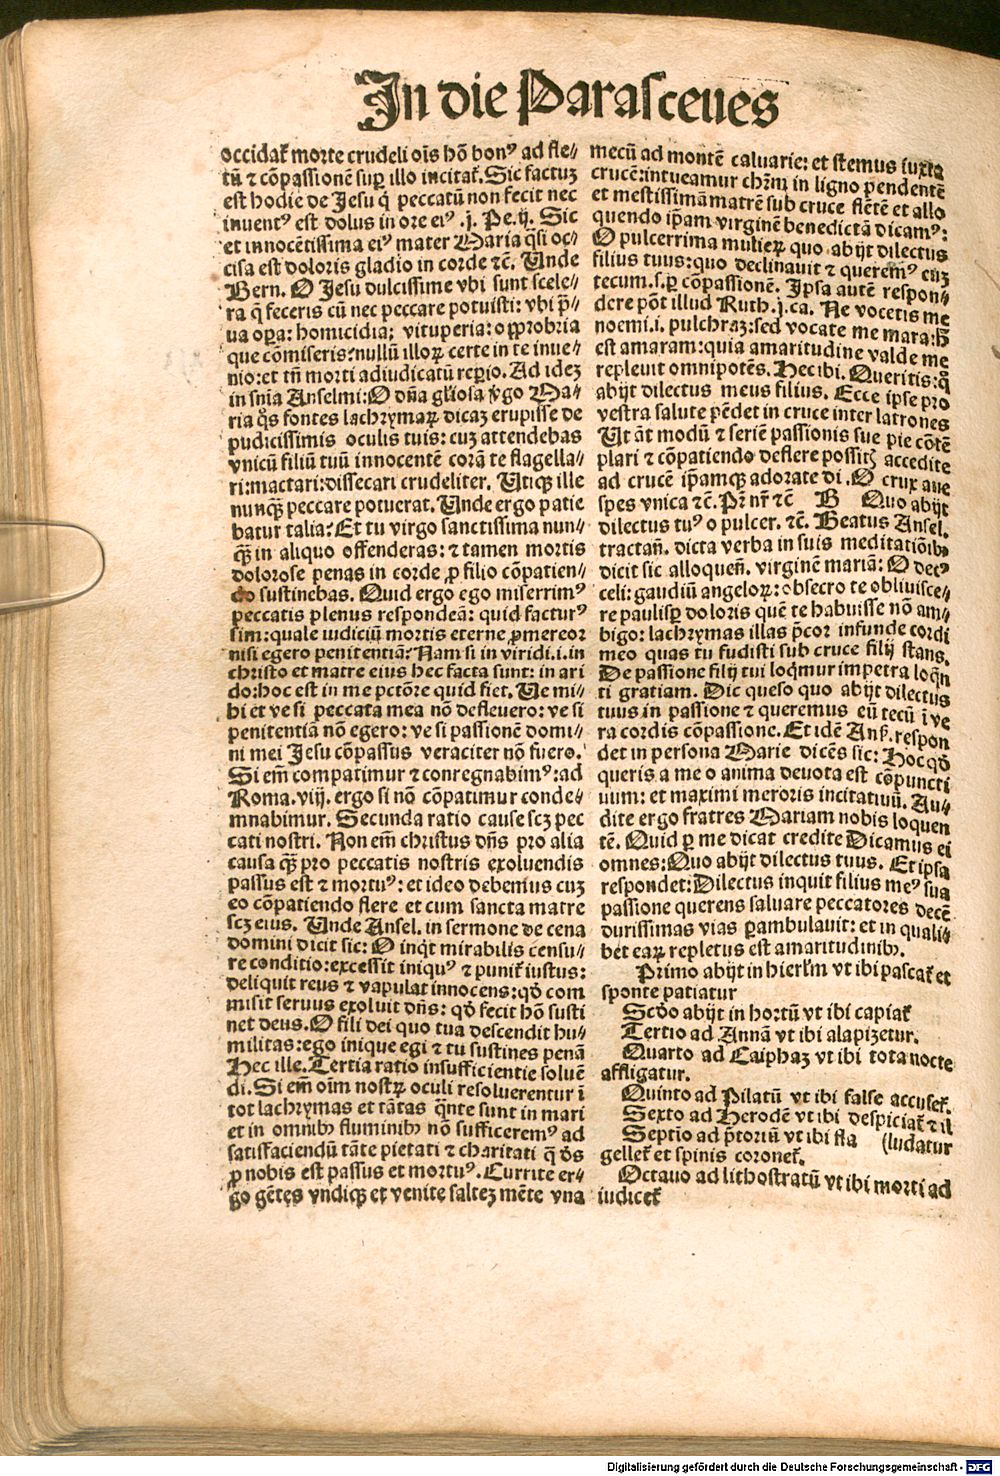 In die Parasceues
occidat᷒ morte crudeli oīs hō bonꝰ ad fle⸗
tū ⁊ cōpassionē suꝑ illo incitat᷒. Sic factuꝫ
est hodie de Jesu q̇ peccatū non fecit nec
inuentꝰ est dolus in ore eiꝰ .j. Pe.ij. Sic
et innocētissima eiꝰ mater Maria q̄si oc⸗
cisa est doloris gladio in corde ⁊c̄. Unde
Bern. O Jesu dulcissime vbi sunt scele⸗
ra q̄ feceris cū nec peccare potuisti: vbi p̄⸗
ua oꝑa: homicidia: vituperia: opprobria
que cōmiseris? nullū illoꝝ certe in te inue⸗
nio: et tn̄ morti adiudicatū reꝑio. Ad ideꝫ
in sn̄ia Anselmi: O dn̄a gl̓iosa v̓go Ma⸗
ria q̊s fontes lachrymaꝝ dicaꝫ erupisse de
pudicissimis oculis tuis: cuꝫ attendebas
vnicū filiū tuū innocentē corā te flagella⸗
ri: mactari: dissecari crudeliter. Utiqꝫ ille
nunqꝫ̄ peccare potuerat. Unde ergo patie
batur talia? Et tu virgo sanctissima nun⸗
qꝫ̄ in aliquo offenderas: ⁊ tamen mortis
dolorose penas in corde ꝓ filio cōpatien⸗
do sustinebas. Quid ergo ego miserrimꝰ
peccatis plenus respondeā: quid facturꝰ
sim: quale iudiciū mortis eterne ꝓmereor
nisi egero penitentiā? Nam si in viridi .i. in
christo et matre eius hec facta sunt: in ari
do: hoc est in me pctōre quid fiet. Ue mi⸗
hi et ve si peccata mea nō defleuero: ve si
penitentiā nō egero: ve si passionē domi⸗
ni mei Jesu cōpassus veraciter nō fuero.
Si em̄ compatimur ⁊ conregnabimꝰ: ad
Roma. viij. ergo si nō cōpatimur conde⸗
mnabimur. Secunda ratio cause scꝫ pec
cati nostri. Non em̄ christus dn̄s pro alia
causa qꝫ̄ pro peccatis nostris exoluendis
passus est ⁊ mortuꝰ: et ideo debemus cuꝫ
eo cōpatiendo flere et cum sancta matre
scꝫ eius. Unde Ansel. in sermone de cena
domini dicit sic: O inq̇t mirabilis censu⸗
re conditio: excessit iniquꝰ ⁊ punit᷒ iustus:
deliquit reus ⁊ vapulat innocens: qd̓ com
misit seruus exoluit dn̄s: qd̓ fecit hō susti
net deus. O fili dei quo tua descendit hu⸗
militas: ego inique egi ⁊ tu sustines penā
Hec ille. Tertia ratio insufficientie soluē
di. Si em̄ oīm nostꝝ oculi resoluerentur ī
tot lachrymas et tātas q̄nte sunt in mari
et in omnibꝫ fluminibꝫ nō sufficeremꝰ ad
satisfaciendū tāte pietati ⁊ charitati q̄ dꝰs
ꝓ nobis est passus et mortuꝰ. Currite er⸗
go gētes vndiqꝫ et venite salteꝫ mēte vna
mecū ad montē caluarie: et stemus iuxta
crucē: intueamur chr̄m in ligno pendentē
et mestissimā matrē sub cruce flētē et allo
quendo ip̄am virginē benedictā dicamꝰ:
O pulcerrima mulieꝝ quo abijt dilectus
filius tuus: quo declinauit ⁊ queremꝰ euꝫ
tecum .s. ꝑ cōpassionē. Ipsa autē respon⸗
dere pōt illud Ruth .j. ca. Ne vocetis me
noemi .i. pulchraꝫ: sed vocate me mara: h̄
est amaram: quia amaritudine valde me
repleuit omnipotēs. Hec ibi. Queritis: q̄
abijt dilectus meus filius. Ecce ipse pro
vestra salute pēdet in cruce inter latrones
Ut āt modū ⁊ seriē passionis sue pie cōtē
plari ⁊ cōpatiendo deflere possitꝭ accedite
ad crucē ip̄amqꝫ adorate di. O crux aue
spes vnica ⁊c̄. Pr̄ nr̄ ⁊c̄ B Quo abijt
dilectus tuꝰ o pulcer. ⁊c̄. Beatus Ansel.
tractan̄. dicta verba in suis meditatiōibꝫ
dicit sic alloquen̄. virginē mariā: O decꝰ
celi: gaudiū angeloꝝ: obsecro te obliuisce⸗
re paulisꝑ doloris quē te habuisse nō am⸗
bigo: lachrymas illas p̄cor infunde cordi
meo quas tu fudisti sub cruce filij stans.
De passione filij tui loq̄mur impetra loq̄n
ti gratiam. Dic queso quo abijt dilectus
tuus in passione ⁊ queremus eū tecū ī ve
ra cordis cōpassione. Et idē Ans̄. respon
det in persona Marie dicēs sic: Hoc qd̓
queris a me o anima deuota est cōpuncti
uum: et maximi meroris incitatiuū. Au⸗
dite ergo fratres Mariam nobis loquen
tē. Quid ꝑ me dicat credite Dicamus ei
omnes: Quo abijt dilectus tuus. Et ipsa
respondet: Dilectus inquit filius meꝰ sua
passione querens saluare peccatores decē
durissimas vias ꝑambulauit: et in quali⸗
bet eaꝝ repletus est amaritudinibꝫ.
Primo abijt in hierl̓m vt ibi pascat᷒ et
sponte patiatur
Scd̓o abijt in hortū vt ibi capiat᷒
Tertio ad Annā vt ibi alapizetur.
Quarto ad Caiphaꝫ vt ibi tota nocte
affligatur.
Quinto ad Pilatū vt ibi false accuset᷒.
Sexto ad Herodē vt ibi despiciat᷒ ⁊ il
Septīo ad p̄toriū vt ibi fla (ludatur
gellet᷒ et spinis coronet᷒.
Octauo ad lithostratū vt ibi morti ad
iudicet᷒
Digitalisierung gefördert durch die Deutsche Forschungsgemeinschaft - DFG